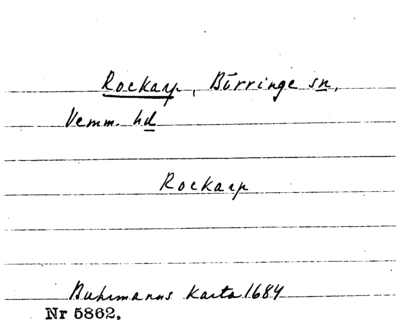 Rockarp, Börringe sn,
Vemm. hd
Rockarp
Buhrmanns karta 1684
Nr 5862.